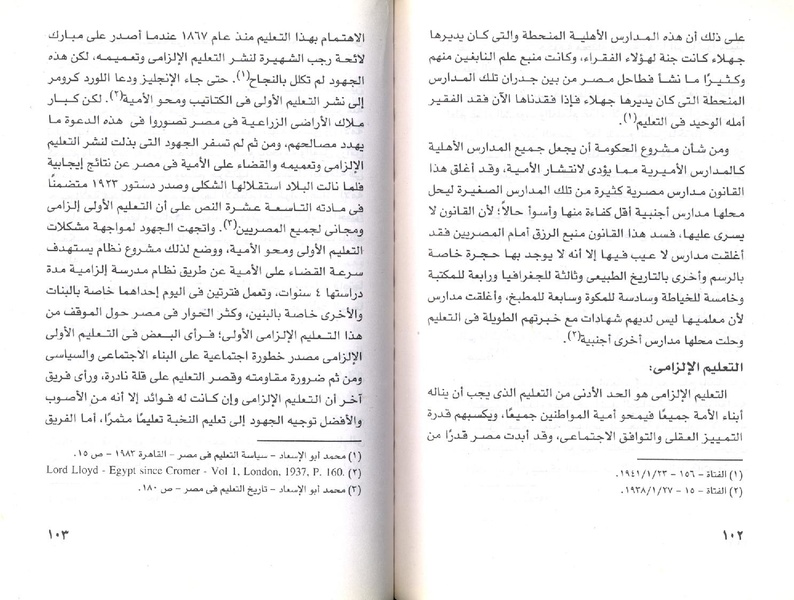 على ذلك أن هذه المدارس الأهلية المنحطة والتى كان يديرها
جهلاء كانت جنة لهؤلاء الفقراء، وكانت منبع علم النابغين منهم
وكثيرًا ما نشأ فطاحل مصر من بين جدران تلك المدارس
المنحطة التى كان يديرها جهلاء فإذا فقدناها الآن فقد الفقير
أمله الوحيد فى التعليم(١).
ومن شأن مشروع الحكومة أن يجعل جميع المدارس الأهلية
كالمدارس الأميرية مما يؤدى لانتشار الأمية، وقد أغلق هذا
القانون مدارس مصرية كثيرة من تلك المدارس الصغيرة ليحل
محلها مدارس أجنبية أقل كفاءة منها وأسوأ حالاً؛ لأن القانون لا
يسرى عليها، فسد هذا القانون منبع الرزق أمام المصريين فقد
أغلقت مدارس لا عيب فيها إلا أنه لا يوجد بها حجرة خاصة
بالرسم وأخرى بالتاريخ الطبيعى وثالثة للجغرافيا ورابعة للمكتبة
وخامسة للخياطة وسادسة للمكوة وسابعة للمطبخ، وأغلقت مدارس
لأن معلميها ليس لديهم شهادات مع خبرتهم الطويلة فى التعليم
وحلت محلها مدارس أخرى أجنبية(٢).
التعليم الإلزامى:
التعليم الإلزامى هو الحد الأدنى من التعليم الذى يجب أن يناله
أبناء الأمة جميعًا فيمحو أمية المواطنين جميعًا، ويكسبهم قدرة
التمييز العقلى والتوافق الاجتماعى، وقد أبدت مصر قدرًا من
(١) الفتاة – ١٥٦ – ١٩٤١/١/٢٣.
(٢) الفتاة – ١٥ – ١٩٣٨/١/٢٧.
١٠٢
الاهتمام بهذا التعليم منذ عام ١٨٦٧ عندما أصدر على مبارك
لائحة رجب الشهيرة لنشر التعليم الإلزامى وتعميمه، لكن هذه
الجهود لم تكلل بالنجاح(١). حتى جاء الإنجليز ودعا اللورد كرومر
إلى نشر التعليم الأولى فى الكتاتيب ومحو الأمية(٢). لكن كبار
ملاك الأراضى الزراعية فى مصر تصوروا فى هذه الدعوة ما
يهدد مصالحهم، ومن ثم لم تسفر الجهود التى بذلت لنشر التعليم
الإلزامى وتعميمه والقضاء على الأمية فى مصر عن نتائج إيجابية
فلما نالت البلاد استقلالها الشكلى وصدر دستور ١٩٢٣ متضمنًا
فى مادته التاسعة عشرة النص على أن التعليم الأولى إلزامى
ومجانى لجميع المصريين(٣). واتجهت الجهود لمواجهة مشكلات
التعليم الأولى ومحو الأمية، ووضع لذلك مشروع نظام يستهدف
سرعة القضاء على الأمية عن طريق نظام مدرسة إلزامية مدة
دراستها ٤ سنوات، وتعمل فترتين فى اليوم إحداهما خاصة بالبنات
والأخرى خاصة بالبنين، وكثر الحوار فى مصر حول الموقف من
هذا التعليم الإلزامى الأولى؛ فرأى البعض فى التعليم الأولى
الإلزامى مصدر خطورة اجتماعية على البناء الاجتماعى والسياسى
ومن ثم ضرورة مقاومته وقصر التعليم على قلة نادرة، ورأى فريق
آخر أن التعليم الإلزامى وإن كانت له فوائد إلا أنه من الأصوب
والأفضل توجيه الجهود إلى تعليم النخبة تعليمًا مثمرًا، أما الفريق
(١) محمد أبو الإسعاد – سياسة التعليم فى مصر – القاهرة ١٩٨٣ – ص ١٥.
(٢) Lord Lloyd - Egypt since Cromer - Vol 1, London, 1937, P. 160.
(٣) محمد أبو الإسعاد – تاريخ التعليم فى مصر – ص ١٨٠.
١٠٣